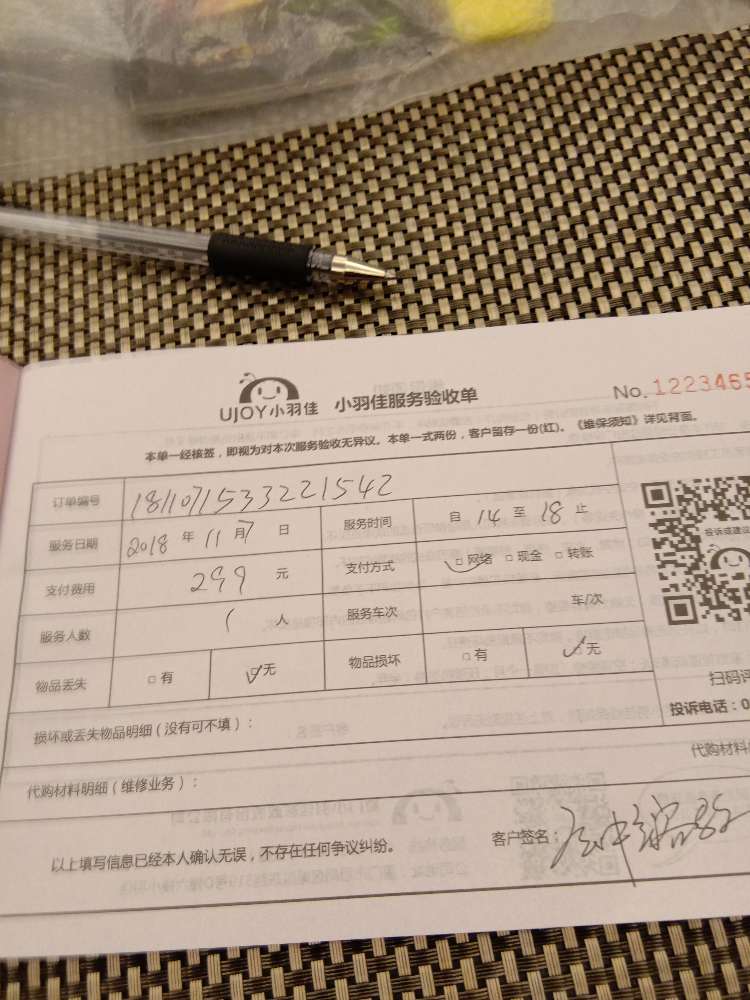 UJOY小羽佳 小羽佳服务验收单 No.1223465
本单一经核签，即视为对本次服务验收无异议。本单一式两份，客户留存一份(红)。《维保须知》详见背面。
订单编号 1811071533221542
服务日期 2018 年 11 月 7 日 服务时间 自 14 至 18 止
支付费用 299 元 支付方式 □网络 □现金 □转账
服务人数 1 人 服务车次 车/次
物品丢失 □有 □无 物品损坏 □有 □无
投诉或建议
扫码评
损坏或丢失物品明细（没有可不填）： 投诉电话：0
代购材料明细（维修业务）： 代购材料
以上填写信息已经本人确认无误，不存在任何争议纠纷。 客户签名：